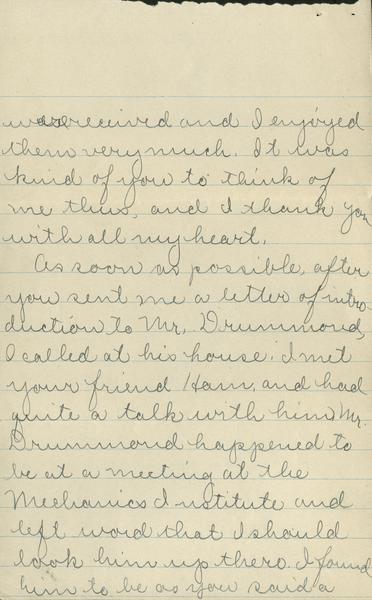 was received and I enjoyed
them very much. It was
kind of you to think of
me thus, and I thank you
with all my heart.
As soon as possible, after
you sent me a letter of intro-
duction to Mr. Drummond,
I called at his house. I met
your friend Ham, and had
quite a talk with him Mr.
Drummond happened to
be at a meeting at the
Mechanics Institute and
left word that I should
look him up there. I found
him to be as you said a